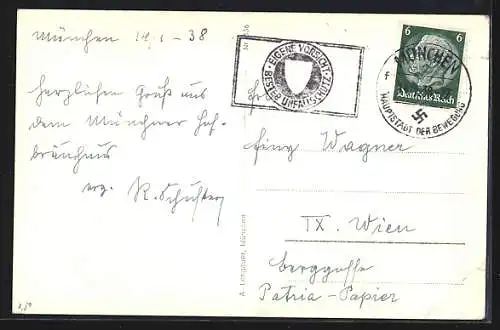 München 14/1 - 38
herzlichen Gruß aus
dem Münchner Hof-
bräuhaus
erg. R. Schuster
EIGENE VORSICHT
BESTER UNFALLSCHUTZ
6 6
Deutsches Reich
MÜNCHEN
HAUPTSTADT DER BEWEGUNG
Wagner
IX. Wien
Berggasse
Patria-Papier
A. Lengauer, München